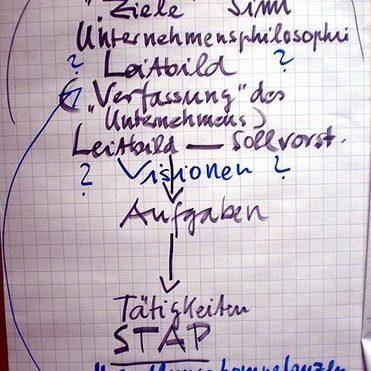 "Ziele" Sinn
Unternehmensphilosophi
? Leitbild ?
("Verfassung" des
Unternehmens)
Leitbild — Sollvorst.
? Visionen ?
Aufgaben
Tätigkeiten
STAP